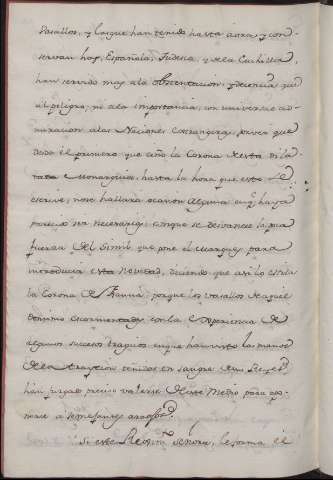 Vasallos, y los que han tenido hasta aora, y con-
servan hoy, Española, Tudesca, y de la Cuchilla,
han servido mas a la obstentacion, y decencia que
al peligro, ni a la importancia, con universal ad-
miracion a las Naciones Extrangeras, pues que
desde el primero que ciño la Corona de esta dila-
tada Monarquia, hasta la hora que esto se
escrive, no se hallará ocasion alguna en q.e haya
parecido ser necesaria; con que se desvanece la
fuerza del Simil que pone el Marques para
introducir esta novedad, diciendo que asi lo estila
la Corona de Francia; porque los vasallos de aquel
dominio escarmentados con la experiencia de
algunos sucesos tragicos en que han visto las manos
de la traycion teñidas en sangre de sus Reyes,
han juzgado preciso valerse de este Medio para opo-
nerse a semejantes
Si este Regim.to Señora, se forma el